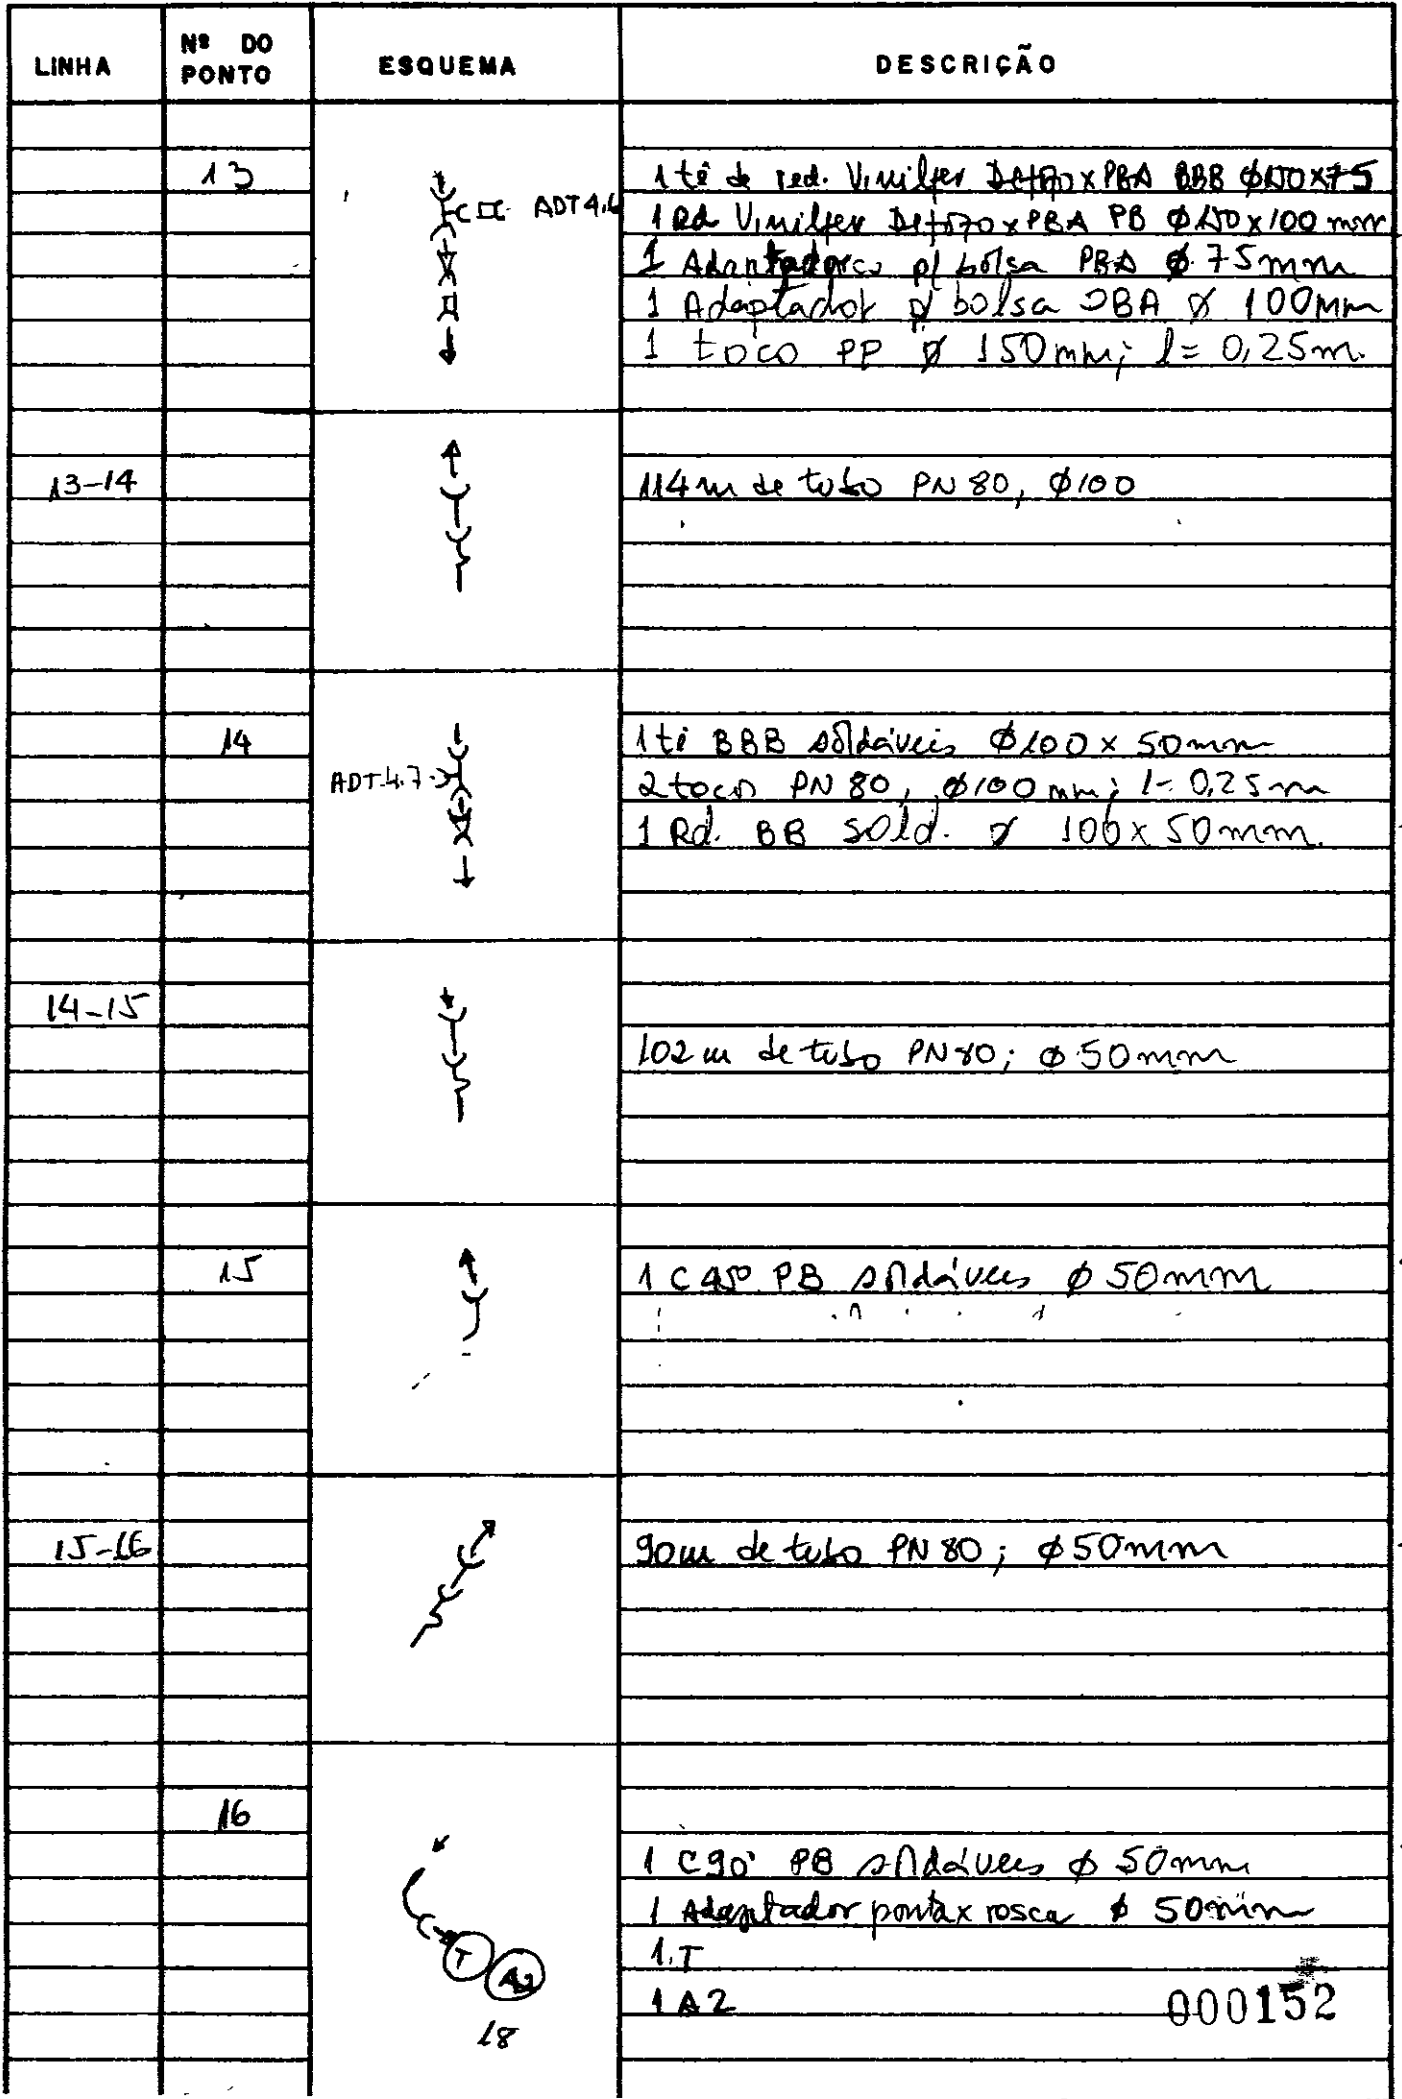 LINHA
Nº DO PONTO
ESQUEMA
DESCRIÇÃO
13
ADT 4.6
1 tê de red. Vinilfer Defofo x PBA BBB Ø150x75
1 Rd Vinilfer Defofo x PBA PB Ø150x100 mm
1 Adaptador p/ bolsa PBA Ø 75mm
1 Adaptador p/ bolsa PBA Ø 100mm
1 toco PP Ø 150mm; l = 0,25m.
13-14
114 m de tubo PN 80, Ø100
14
ADT-4.7
1 tê BBB soldáveis Ø100 x 50mm
2 tocos PN 80, Ø100 mm; l = 0,25m
1 Rd. BB sold. Ø 100 x 50mm.
14-15
102 m de tubo PN80; Ø 50mm
15
1 C 45º PB soldáveis Ø 50mm
15-16
90m de tubo PN 80; Ø50mm
16
T
A2
18
1 C90º PB soldáveis Ø 50mm
1 Adaptador ponta x rosca Ø 50mm
1.T
1 A2
000152